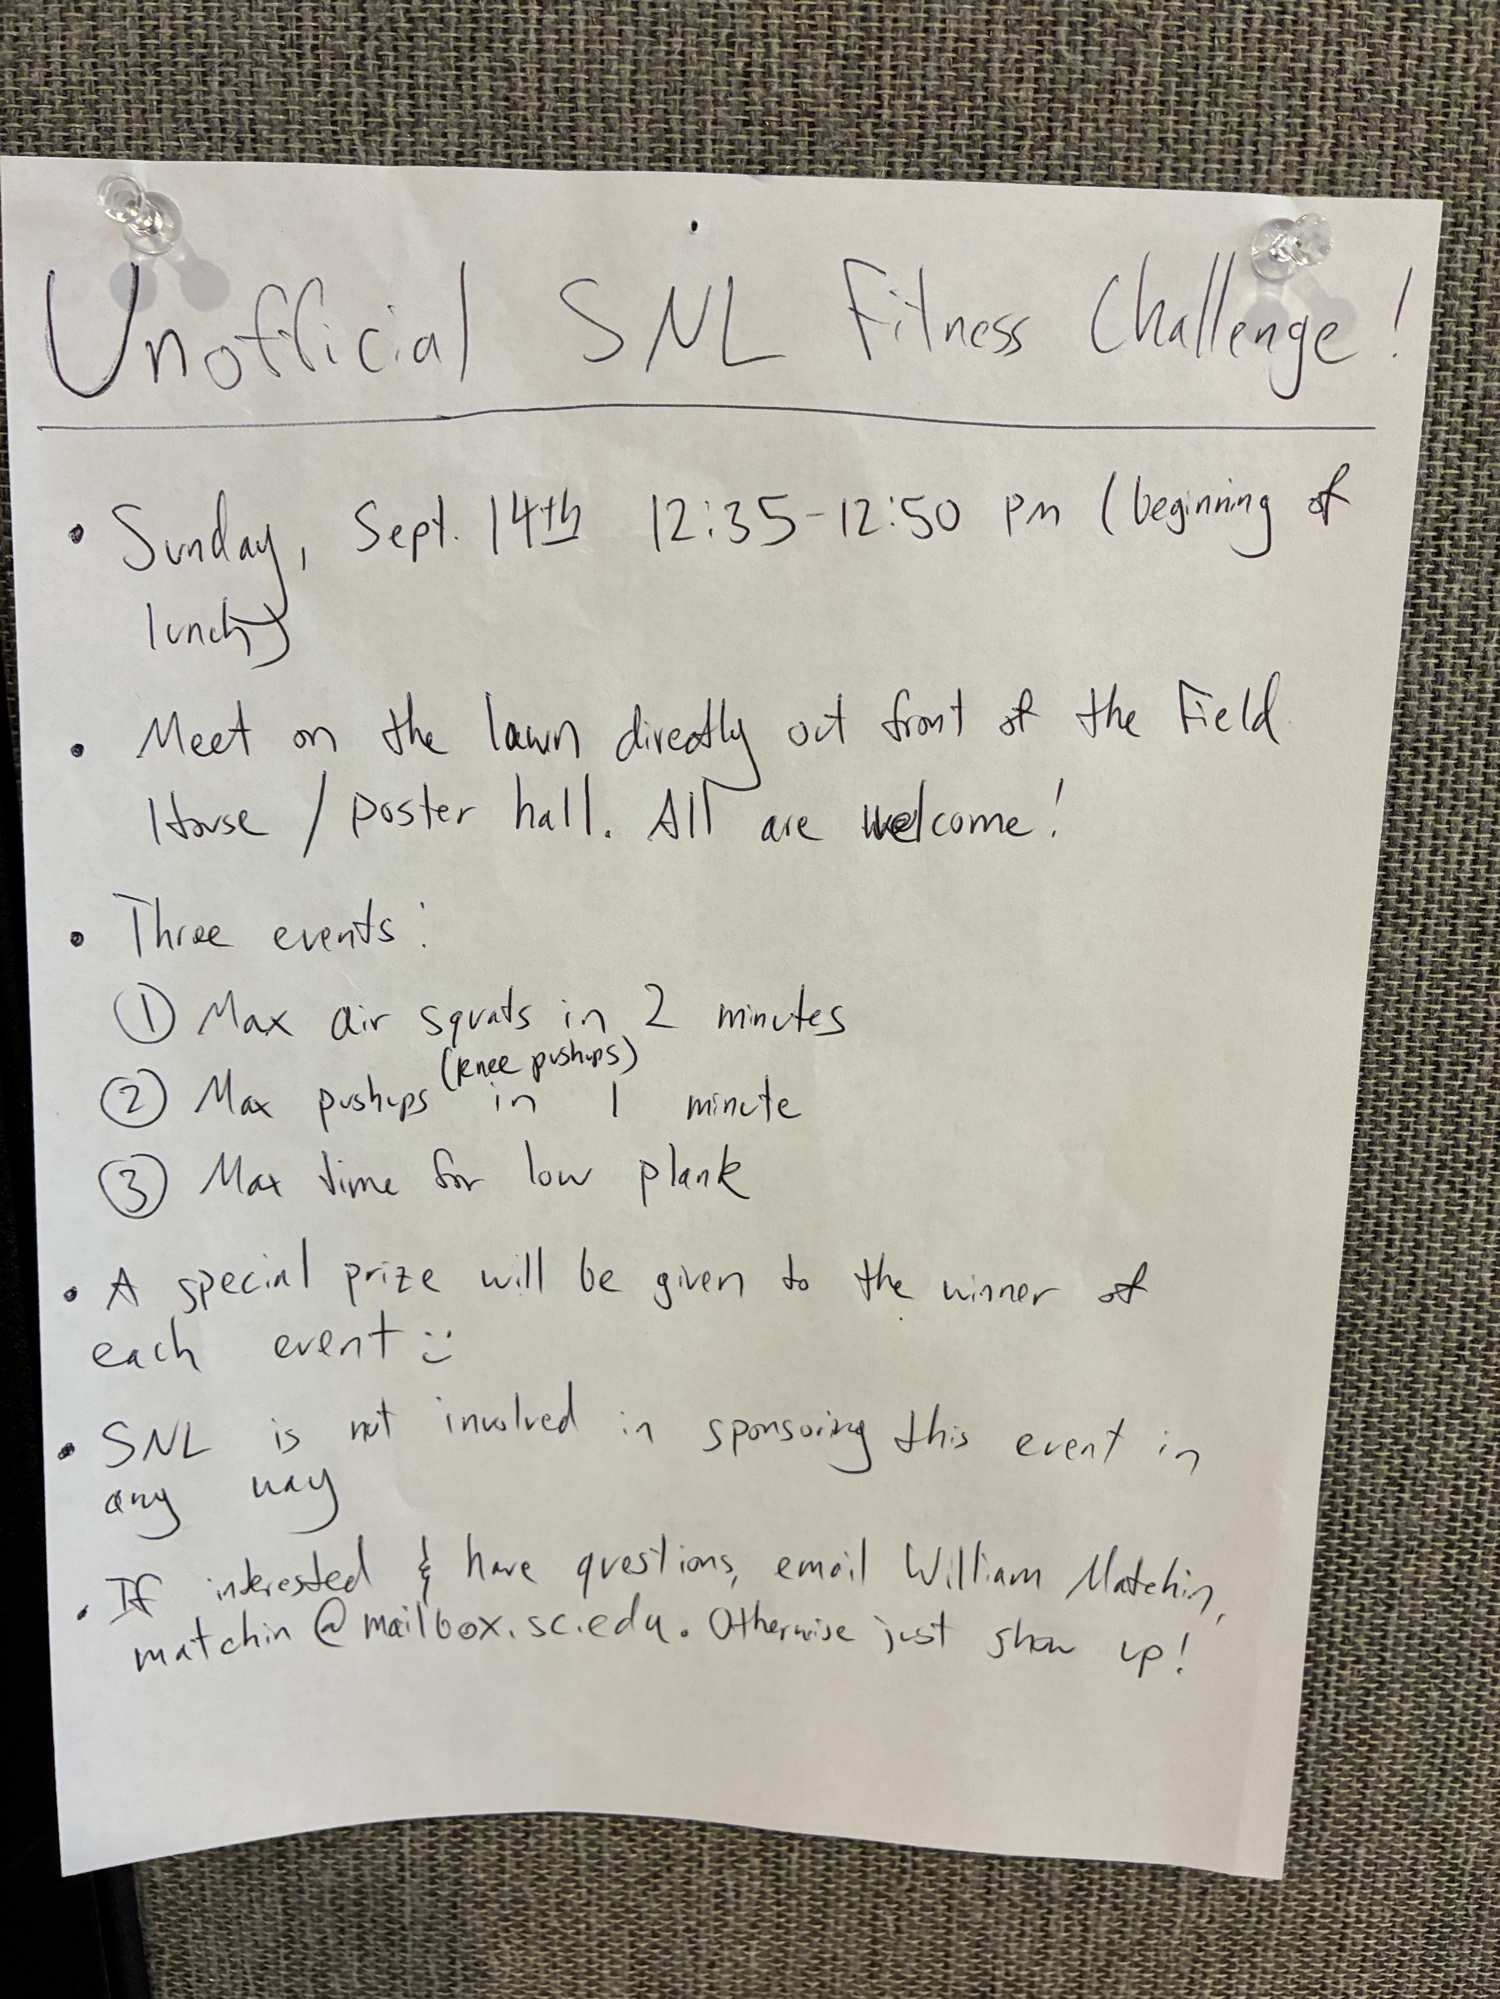 Unofficial SNL Fitness Challenge!
• Sunday, Sept. 14th 12:35-12:50 pm (beginning of
lunch)
• Meet on the lawn directly out front of the Field
House / poster hall. All are welcome!
• Three events:
① Max air squats in 2 minutes
(knee pushups)
② Max pushups in 1 minute
③ Max time for low plank
• A special prize will be given to the winner of
each event :)
• SNL is not involved in sponsoring this event in
any way
• If interested & have questions, email William Matchin,
matchin@mailbox.sc.edu. Otherwise just show up!